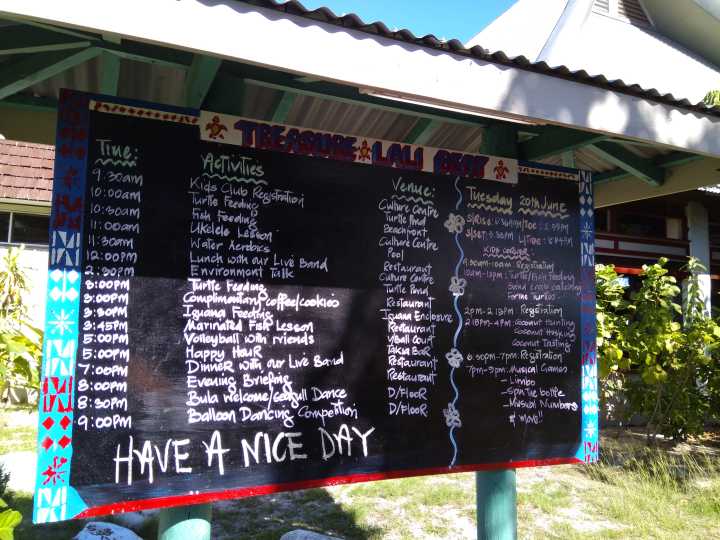 TREASURE LALI BEAT
Time: Activities Venue:
9:30am Kids Club Registration Culture Centre
10:00am Turtle Feeding Turtle Pond
10:30am Fish Feeding Beachfront
11:00am Ukelele Lesson Culture Centre
11:30am Water Aerobics Pool
12:00pm Lunch with our Live Band Restaurant
2:30pm Environment Talk Culture Centre
3:00pm Turtle Feeding Turtle Pond
3:00pm Complimentary coffee/cookies Restaurant
3:30pm Iguana Feeding Iguana Enclosure
3:45pm Marinated Fish Lesson Restaurant
5:00pm Volleyball with friends V/Ball Court
5:00pm Happy Hour Bar
7:00pm Dinner with our Live Band Restaurant
8:00pm Evening Briefing Restaurant
8:00pm Bula welcome/Seagull Dance D/Floor
9:00pm Balloon Dancing Competition D/Floor
HAVE A NICE DAY
Tuesday 20th June
Kids Corner
Registration
10am-12pm: Turtle/Fish Feeding
Sand crab catching
2pm-2:15pm Registration
2:15pm-4pm: Coconut Hunting
Coconut Husking
Coconut Tasting
6:50pm-7pm: Registration
7pm-9pm: Musical Games
- Limbo
- Spin the bottle
- Musical Numbers
& more!!